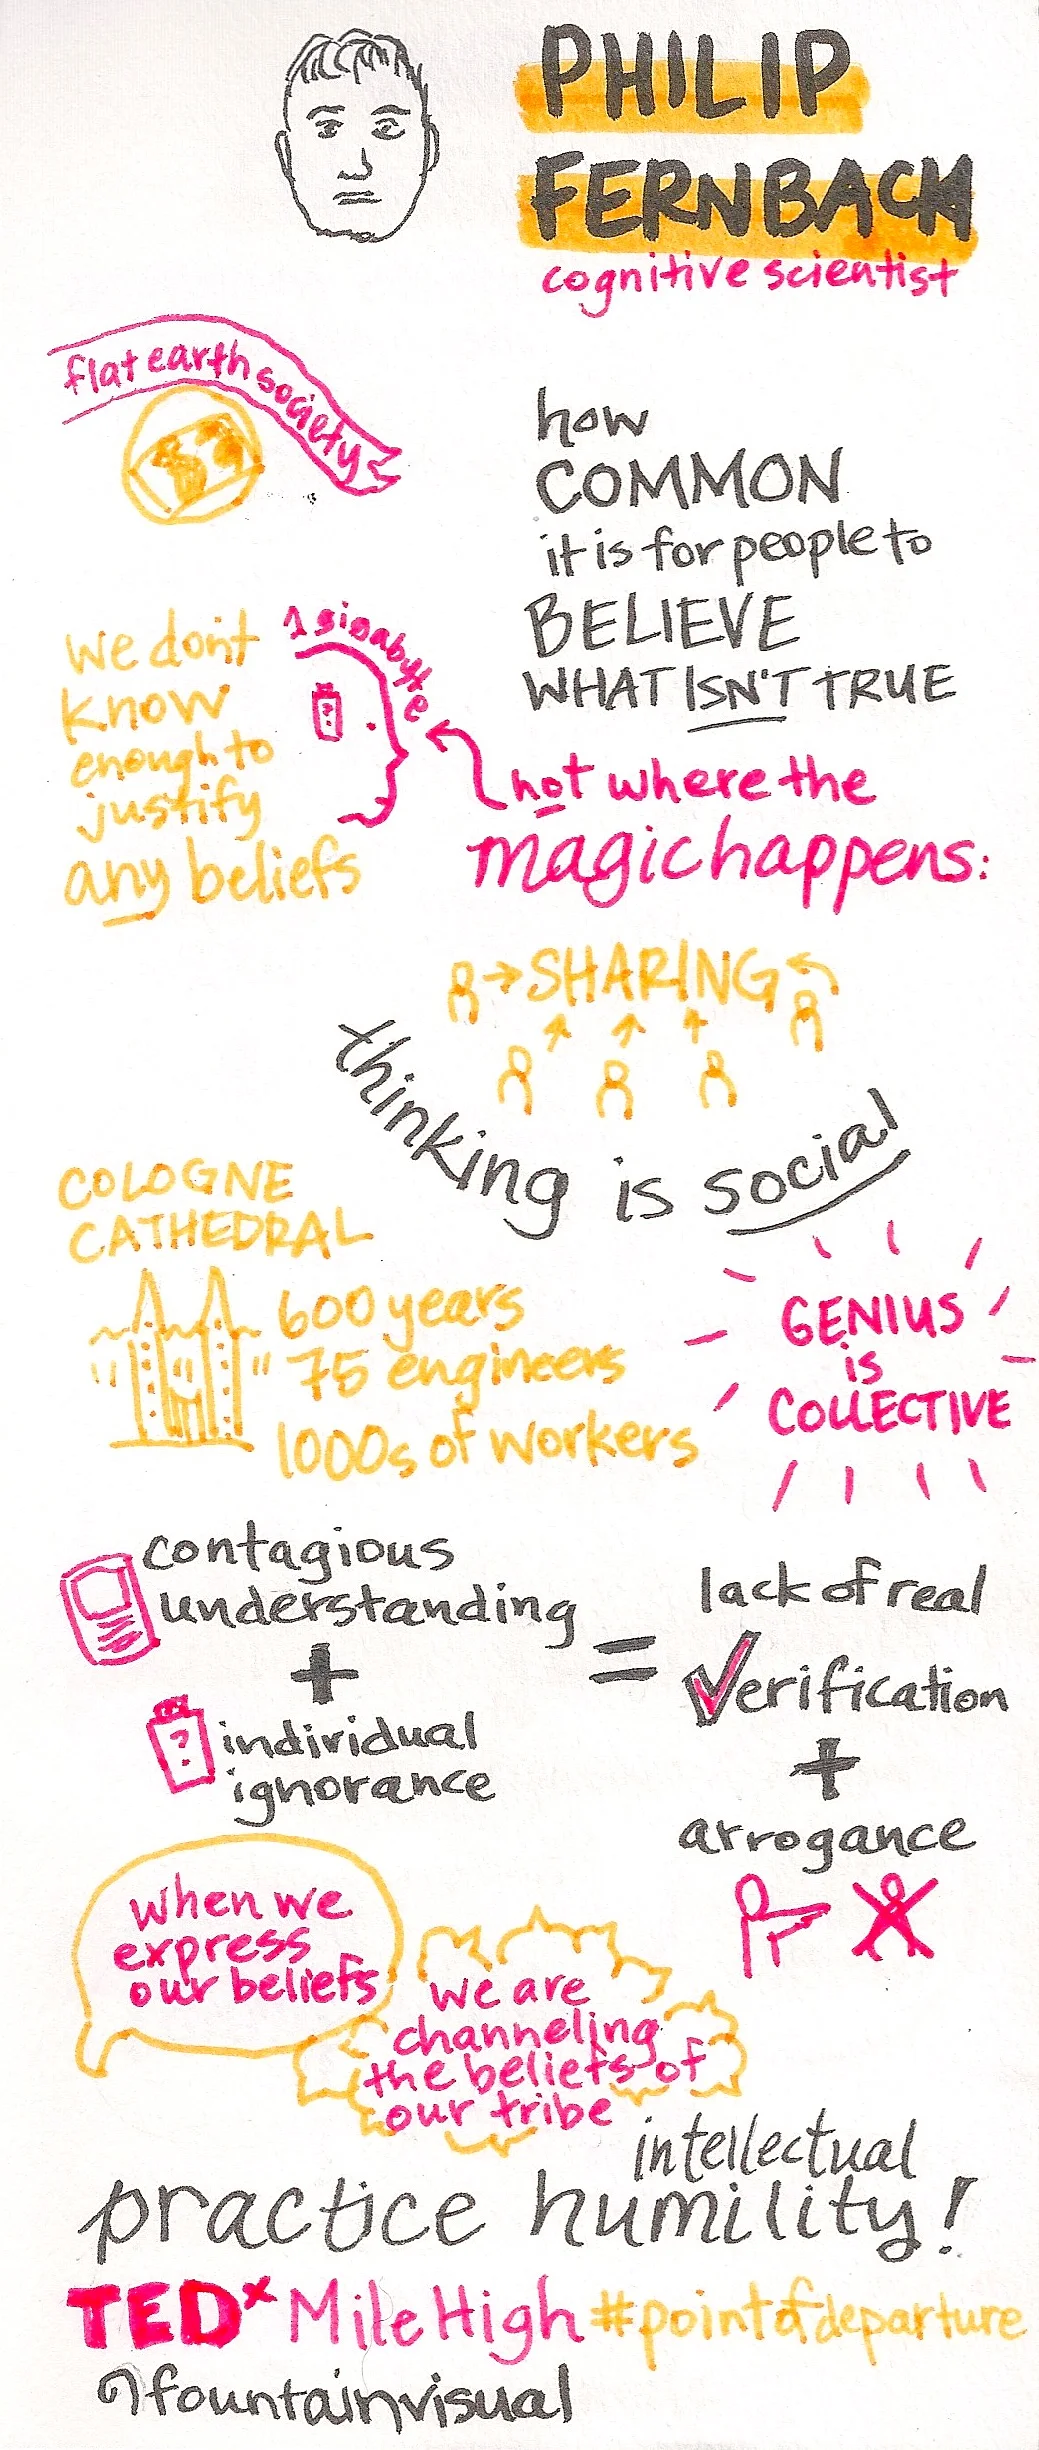 PHILIP
FERNBACK
cognitive scientist
flat earth society
how
COMMON
it is for people to
BELIEVE
WHAT ISN'T TRUE
we don't
know
enough to
justify
any beliefs
1 gigabyte
?
not where the
magic happens:
SHARING
thinking is social
COLOGNE
CATHEDRAL
600 years
75 engineers
1000s of workers
GENIUS
is
COLLECTIVE
contagious
understanding
+
?
individual
ignorance
=
lack of real
verification
+
arrogance
when we
express
our beliefs
we are
channeling
the beliefs of
our tribe
intellectual
practice humility!
TEDx Mile High #pointofdeparture
fountainvisual